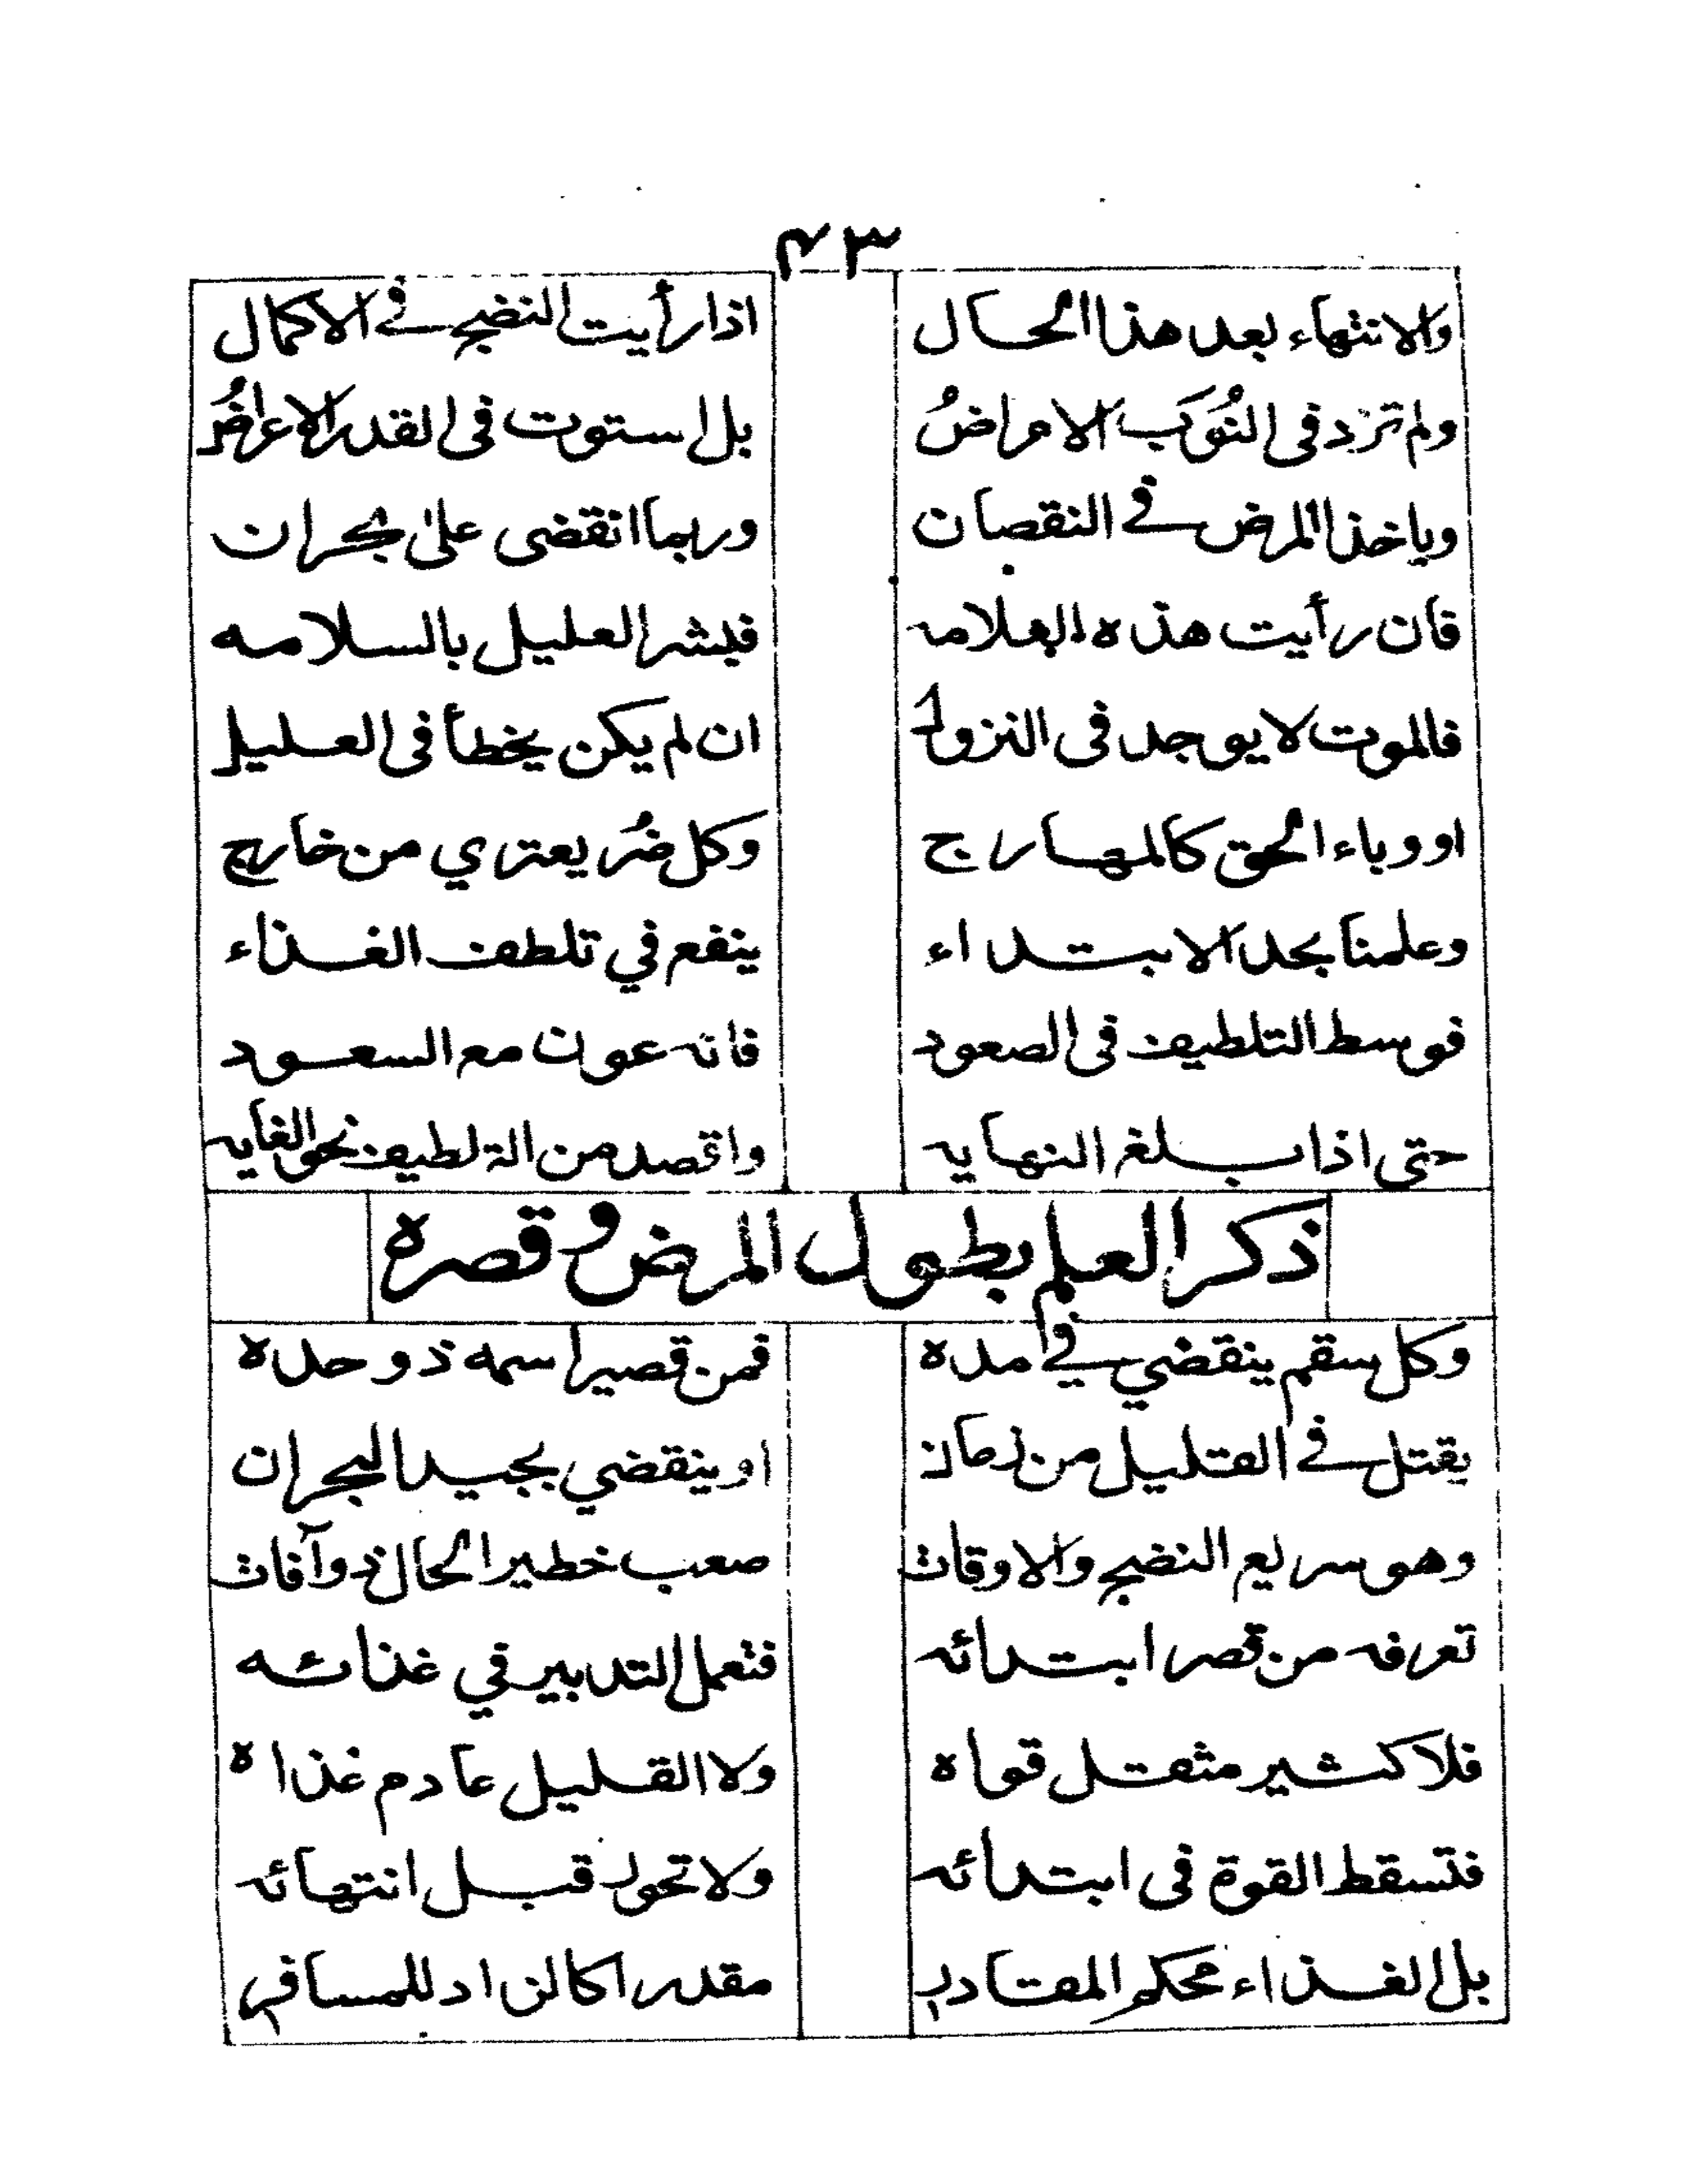 ٤٣
والانتهاء بعد هذا الحال اذا رأيت النضج في الاكمال
ولم تزد في النُوَب الامراضُ بل استوت في القدر الاعراضُ
وياخذ المرض في النقصان وربما انقضى على بحران
فان رأيت هذه العلامه فبشر العليل بالسلامه
فالموت لا يوجد في النزول ان لم يكن يخطأ في العليل
او وباء الحق كالمهارج وكل ضُر يعتري من خارج
وعلمنا بحد الابتداء ينفع في تلطف الغذاء
فوسط التلطيف في الصعود فانه عون مع السعود
حتى اذا بلغ النهايه واقصد من التلطيف نحو الغايه
ذكر العلم بطول المرض وقصره
وكل سقم ينقضي في مده فمن قصير اسمه ذو حده
يقتل في القليل من زمان او ينقضي بجيد البحران
وهو سريع النضج والاوقات صعب خطير الحال ذو آفات
تعرفه من قصر ابتدائه فتعمل التدبير في غذائه
فلا كثير مثقل قواه ولا القليل عادم غذاه
فتسقط القوة في ابتدائه ولا تحول قبل انتهائه
بل الغذاء محكم المقادر مقدرا كالزاد للمسافر